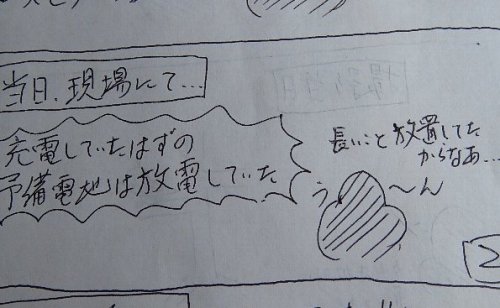 当日、現場にて…
充電していたはずの
予備電池は放電していた
長いこと放置してた
からなあ…
う〜ん
2